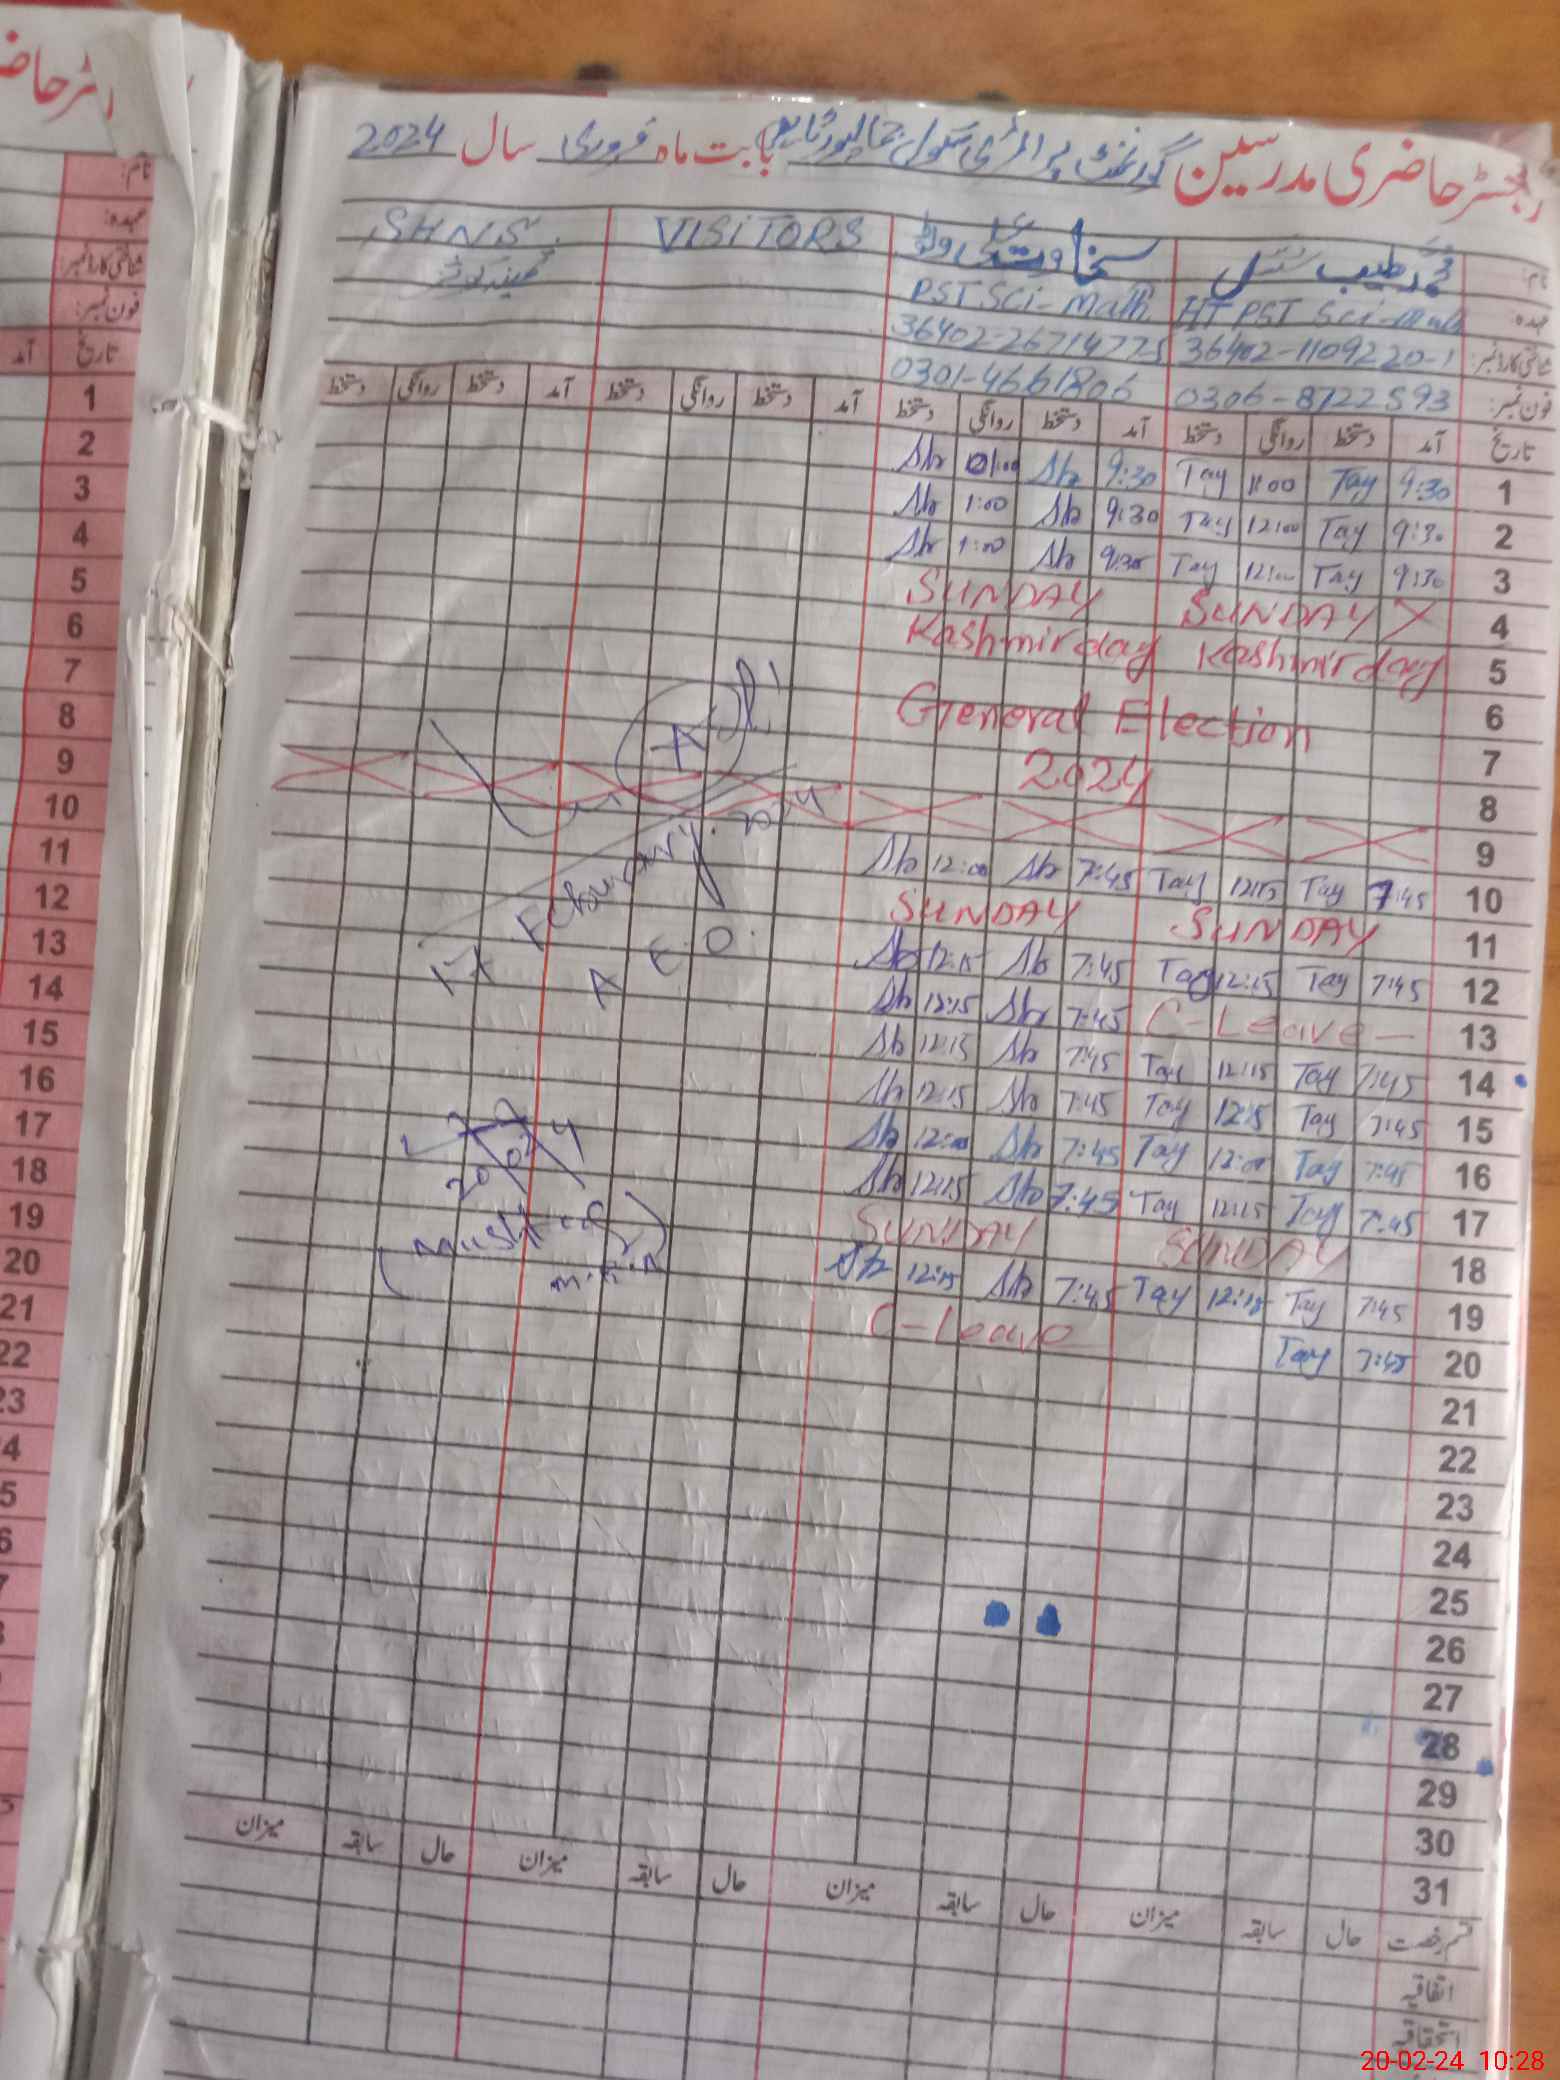 رجسٹر حاضری مدرسین گورنمنٹ پرائمری سکول بابت ماہ فروری سال 2024
نام:
محمد طیب
سخاوت علی
VISITORS
SHNS
عہدہ:
HT PST Sci-Math
PST Sci-Math
شناختی کارڈ نمبر:
36402-1109220-1
36402-2671477-5
فون نمبر:
0306-8722593
0301-4661806
تاریخ آمد دستخط روانگی دستخط آمد دستخط روانگی دستخط آمد دستخط روانگی دستخط آمد دستخط روانگی دستخط
1 9:30 Tay 11:00 Tay 9:30 Sh 01:00 Sh
2 9:30 Tay 12:00 Tay 9:30 Sh 1:00 Sh
3 9:30 Tay 12:00 Tay 9:30 Sh 1:00 Sh
4 SUNDAY SUNDAY
5 Kashmir day Kashmir day
6 General Election
7 2024
8
9
10 7:45 Tay 12:15 Tay 7:45 Sh 12:00 Sh
11 SUNDAY SUNDAY
12 7:45 Tay 12:15 Tay 7:45 Sh 12:15 Sh
13 C-Leave 7:45 Sh 12:15 Sh
14 7:45 Tay 12:15 Tay 7:45 Sh 12:15 Sh
15 7:45 Tay 12:15 Tay 7:45 Sh 12:15 Sh
16 7:45 Tay 12:00 Tay 7:45 Sh 12:00 Sh
17 7:45 Tay 12:15 Tay 7:45 Sh 12:15 Sh
18 SUNDAY SUNDAY
19 7:45 Tay 12:15 Tay 7:45 Sh 12:15 Sh
20 7:45 Tay C-Leave
21
22
23
24
25
26
27
28
29
30
31
17 February. 2024
A E O
2024
قسم رخصت حال سابقہ میزان حال سابقہ میزان حال سابقہ میزان حال سابقہ میزان
اتفاقیہ
استحقاقیہ
نام:
عہدہ:
شناختی کارڈ نمبر:
فون نمبر:
تاریخ آمد
1
2
3
4
5
6
7
8
9
10
11
12
13
14
15
16
17
18
19
20
21
22
23
20-02-24 10:28